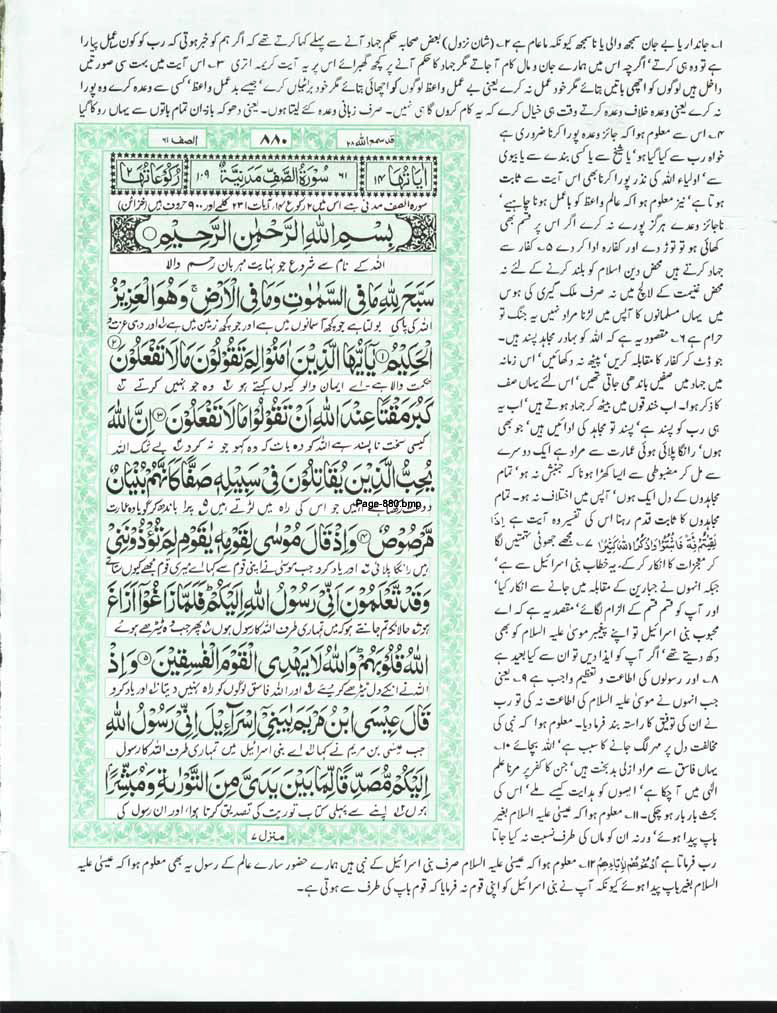 ۱۔ جاندار یا بے جان سمجھ والی یا ناسمجھ کیونکہ ما عام ہے ۲۔ (شان نزول) بعض صحابہ حکم جہاد آنے سے پہلے کہا کرتے تھے کہ اگر ہم کو خبر ہوتی کہ رب کو کون عمل پیارا
ہے تو وہ ہی کرتے' اگرچہ اس میں ہمارے جان و مال کام آ جاتے مگر جہاد کا حکم آنے پر کچھ گھبرائے اس پر یہ آیت کریمہ اتری ۳۔ اس آیت میں بہت سی صورتیں
داخل ہیں لوگوں کو اچھی باتیں بتائے مگر خود عمل نہ کرے یعنی بے عمل واعظ لوگوں کو اچھائی بتائے مگر خود برائیاں کرے' جیسے بد عمل واعظ' کسی سے وعدہ کرے وہ پورا
نہ کرے یعنی وعدہ خلاف وعدہ کرتے وقت ہی خیال کرے کہ یہ کام کروں گا ہی نہیں۔ صرف زبانی وعدہ کئے لیتا ہوں۔ یعنی دھوکہ باز۔ ان تمام باتوں سے یہاں روکا گیا
۴۔ اس سے معلوم ہوا کہ جائز وعدہ پورا کرنا ضروری ہے
خواہ رب سے کیا گیا ہو' یا شیخ سے یا کسی بندے سے یا بیوی
سے' اولیاء اللہ کی نذر پورا کرنا بھی اس آیت سے ثابت
ہوتا ہے' نیز معلوم ہوا کہ عالم واعظ کو باعمل ہونا چاہیے'
ناجائز وعدے ہرگز پورے نہ کرے اگر اس پر قسم بھی
کھائی ہو تو توڑ دے اور کفارہ ادا کر دے ۵۔ کفار سے
جہاد کرتے ہیں محض دین اسلام کو بلند کرنے کے لئے نہ
محض غنیمت کے لالچ میں نہ صرف ملک گیری کی ہوس
میں یہاں مسلمانوں کا آپس میں لڑنا مراد نہیں یہ جنگ تو
حرام ہے ۶۔ مقصود یہ ہے کہ اللہ کو بہادر مجاہد پسند ہیں۔
جو ڈٹ کر کفار کا مقابلہ کریں' پیٹھ نہ دکھائیں' اس زمانہ
میں جہاد میں صفیں باندھی جاتی تھیں' اس لئے یہاں صف
کا ذکر ہوا۔ اب خندقوں میں بیٹھ کر جہاد ہوتے ہیں' اب یہ
ہی رب کو پسند ہے' پسند تو مجاہد کی ادائیں ہیں' جو بھی
ہوں' رانگا پلائی ہوئی عمارت سے مراد ہے ایک دوسرے
سے مل کر مضبوطی سے ایسا کھڑا ہونا کہ جنبش نہ ہو' تمام
مجاہدوں کے دل ایک ہوں' آپس میں اختلاف نہ ہو۔ تمام
مجاہدوں کا ثابت قدم رہنا اس کی تفسیر وہ آیت ہے اِذَا
لَقِيْتُمْ فِئَةً فَاثْبُتُوْا وَاذْكُرُوا اللهَ كَثِيْرًا ۷۔ مجھے جھوٹی تہمتیں لگا
کر معجزات کا انکار کر کے۔ یہ خطاب بنی اسرائیل سے ہے'
جبکہ انہوں نے جبارین کے مقابلہ میں جانے سے انکار کیا'
اور آپ کو قسم قسم کے الزام لگائے' مقصد یہ ہے کہ اے
محبوب بنی اسرائیل تو اپنے پیغمبر موسیٰ علیہ السلام کو بھی
دکھ دیتے تھے' اگر آپ کو ایذا دیں تو ان سے کیا بعید ہے
۸۔ اور رسولوں کی اطاعت و تعظیم واجب ہے ۹۔ یعنی
جب انہوں نے موسیٰ علیہ السلام کی اطاعت نہ کی تو رب
نے ان کی توفیق کا راستہ بند فرما دیا۔ معلوم ہوا کہ نبی کی
مخالفت دل پر مہر لگ جانے کا سبب ہے' اللہ بچائے ۱۰۔
یہاں فاسق سے مراد ازلی بدبخت ہیں' جن کا کفر پر مرنا علم
الٰہی میں آ چکا ہے' ایسوں کو ہدایت کیسے ملے' اس کی
بحث بار بار ہو چکی۔ ۱۱۔ معلوم ہوا کہ عیسیٰ علیہ السلام بغیر
باپ پیدا ہوئے' ورنہ ان کو ماں کی طرف نسبت نہ کیا جاتا
قد سمع اللہ ۲۸ ۸۸۰ الصف ۶۱
اٰيَاتُهَا ۱۴ ۶۱ سُوْرَةُ الصَّفِّ مَدَنِيَّةٌ ۱۰۹ رُكُوْعَاتُهَا ۲
سورہ الصف مدنی ہے اس میں ۲ رکوع ۱۴ آیات ۲۳۱ کلمے اور ۹۰۰ حروف ہیں (خزائن)
بِسْمِ اللهِ الرَّحْمٰنِ الرَّحِيْمِ
اللہ کے نام سے شروع جو نہایت مہربان رحم والا
سَبَّحَ لِلّٰهِ مَا فِي السَّمٰوٰتِ وَمَا فِي الْاَرْضِ ۚ وَهُوَ الْعَزِيْزُ
اللہ کی پاکی بولتا ہے جو کچھ آسمانوں میں ہے اور جو کچھ زمین میں ہے اور وہی عزت و
الْحَكِيْمُ ۱ يٰۤاَيُّهَا الَّذِيْنَ اٰمَنُوْا لِمَ تَقُوْلُوْنَ مَا لَا تَفْعَلُوْنَ ۲
حکمت والا ہے اے ایمان والو کیوں کہتے ہو وہ جو نہیں کرتے
كَبُرَ مَقْتًا عِنْدَ اللهِ اَنْ تَقُوْلُوْا مَا لَا تَفْعَلُوْنَ ۳ اِنَّ اللهَ
کیسی سخت ناپسند ہے اللہ کو وہ بات کہ وہ کہو جو نہ کرو بے شک اللہ
يُحِبُّ الَّذِيْنَ يُقَاتِلُوْنَ فِيْ سَبِيْلِهٖ صَفًّا كَاَنَّهُمْ بُنْيَانٌ
Page-880.bmp
دوست رکھتا ہے انہیں جو اس کی راہ میں لڑتے ہیں پرا باندھ کر گویا وہ عمارت
مَّرْصُوْصٌ ۴ وَاِذْ قَالَ مُوْسٰى لِقَوْمِهٖ يٰقَوْمِ لِمَ تُؤْذُوْنَنِيْ
ہیں رانگا پلائی اور یاد کرو جب موسیٰ نے اپنی قوم سے کہا اے میری قوم مجھے کیوں ستاتے
وَقَدْ تَّعْلَمُوْنَ اَنِّيْ رَسُوْلُ اللهِ اِلَيْكُمْ ؕ فَلَمَّا زَاغُوْۤا اَزَاغَ
ہو حالانکہ تم جانتے ہو کہ میں تمہاری طرف اللہ کا رسول ہوں پھر جب وہ ٹیڑھے ہوئے
اللهُ قُلُوْبَهُمْ ؕ وَاللهُ لَا يَهْدِي الْقَوْمَ الْفٰسِقِيْنَ ۵ وَاِذْ
اللہ نے انکے دل ٹیڑھے کر دیئے اور اللہ فاسق لوگوں کو راہ نہیں دیتا اور یاد کرو
قَالَ عِيْسَى ابْنُ مَرْيَمَ يٰبَنِيْۤ اِسْرَآءِيْلَ اِنِّيْ رَسُوْلُ اللهِ
جب عیسیٰ بن مریم نے کہا اے بنی اسرائیل میں تمہاری طرف اللہ کا رسول
اِلَيْكُمْ مُّصَدِّقًا لِّمَا بَيْنَ يَدَيَّ مِنَ التَّوْرٰىةِ وَمُبَشِّرًۢا
ہوں اپنے سے پہلی کتاب توریت کی تصدیق کرتا ہوا اور ان رسول کی
منزل ۷
رب فرماتا ہے اُدْعُوْهُمْ لِاٰبَآئِهِمْ ۱۲۔ معلوم ہوا کہ عیسیٰ علیہ السلام صرف بنی اسرائیل کے نبی ہیں ہمارے حضور سارے عالم کے رسول یہ بھی معلوم ہوا کہ عیسیٰ علیہ
السلام بغیر باپ پیدا ہوئے کیونکہ آپ نے بنی اسرائیل کو اپنی قوم نہ فرمایا کہ قوم باپ کی طرف سے ہوتی ہے۔